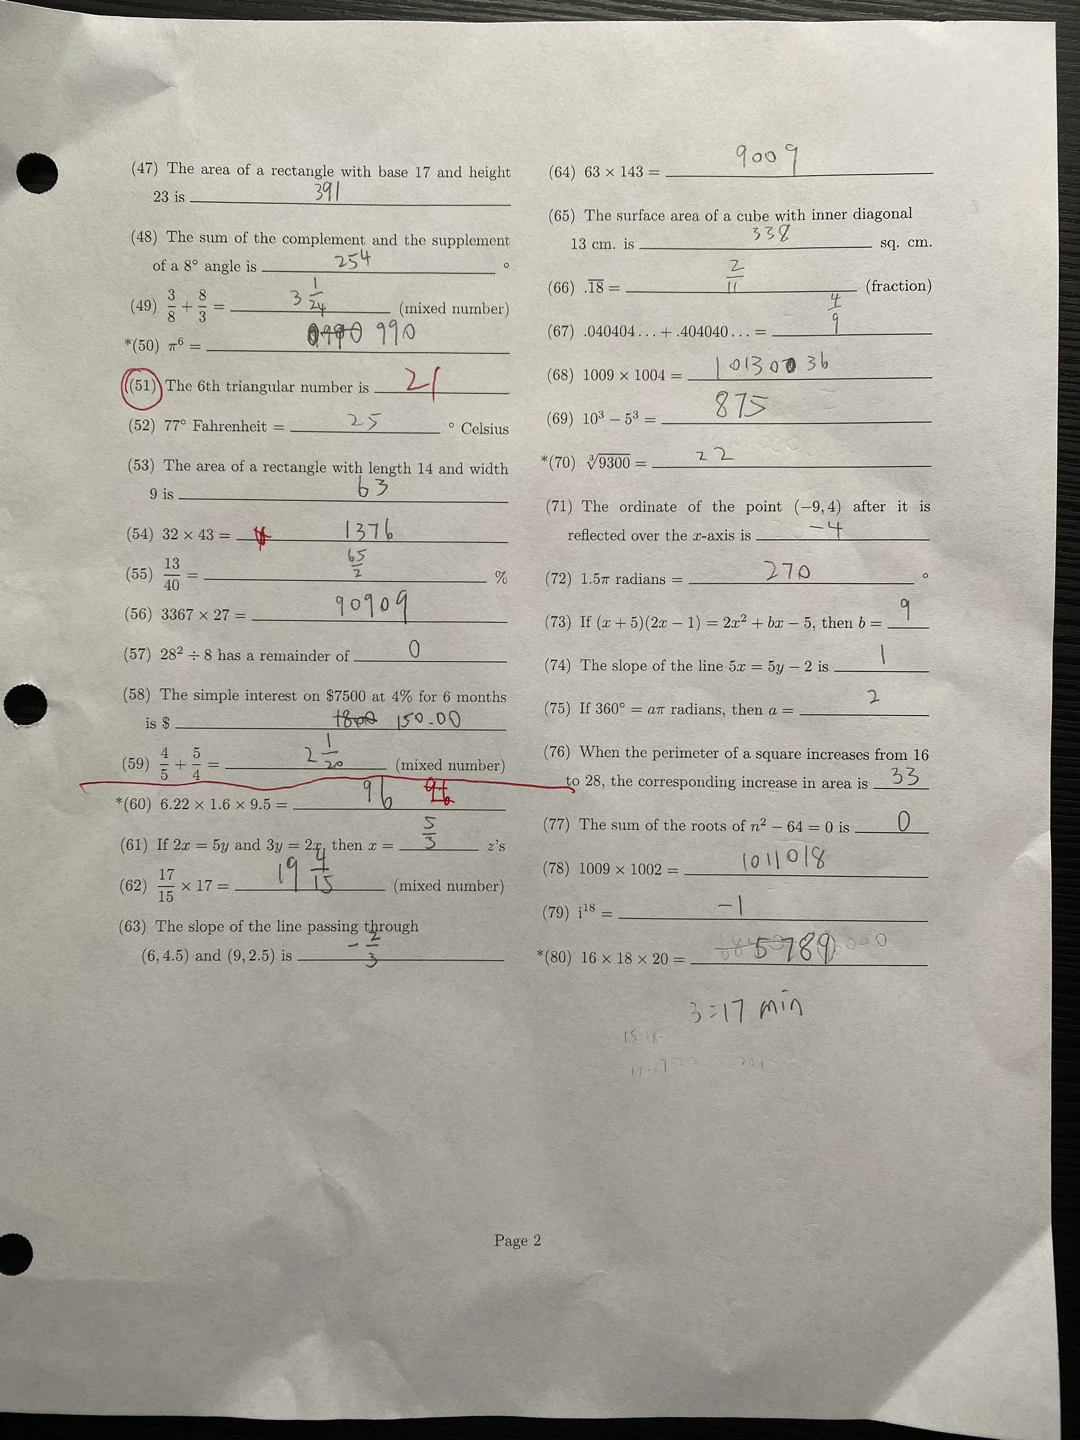 (47) The area of a rectangle with base 17 and height
23 is 391
(48) The sum of the complement and the supplement
of a 8° angle is 254 °
(49) 3/8 + 8/3 = 3 1/24 (mixed number)
*(50) π⁶ = 990
(51) The 6th triangular number is 21
(52) 77° Fahrenheit = 25 ° Celsius
(53) The area of a rectangle with length 14 and width
9 is 63
(54) 32 × 43 = 1376
(55) 13/40 = 65/2 %
(56) 3367 × 27 = 90909
(57) 28² ÷ 8 has a remainder of 0
(58) The simple interest on $7500 at 4% for 6 months
is $ 1800 150.00
(59) 4/5 + 5/4 = 2 1/20 (mixed number)
*(60) 6.22 × 1.6 × 9.5 = 96 96
(61) If 2x = 5y and 3y = 2z, then x = 5/3 z's
(62) 17/15 × 17 = 19 4/15 (mixed number)
(63) The slope of the line passing through
(6, 4.5) and (9, 2.5) is -2/3
(64) 63 × 143 = 9009
(65) The surface area of a cube with inner diagonal
13 cm. is 338 sq. cm.
(66) .1̅8̅ = 2/11 (fraction)
(67) .040404... + .404040... = 4/9
(68) 1009 × 1004 = 1013036
(69) 10³ − 5³ = 875
*(70) ∛9300 = 22
(71) The ordinate of the point (−9, 4) after it is
reflected over the x-axis is -4
(72) 1.5π radians = 270 °
(73) If (x + 5)(2x − 1) = 2x² + bx − 5, then b = 9
(74) The slope of the line 5x = 5y − 2 is 1
(75) If 360° = aπ radians, then a = 2
(76) When the perimeter of a square increases from 16
to 28, the corresponding increase in area is 33
(77) The sum of the roots of n² − 64 = 0 is 0
(78) 1009 × 1002 = 1011018
(79) i¹⁸ = -1
*(80) 16 × 18 × 20 = 5789
3:17 min
Page 2